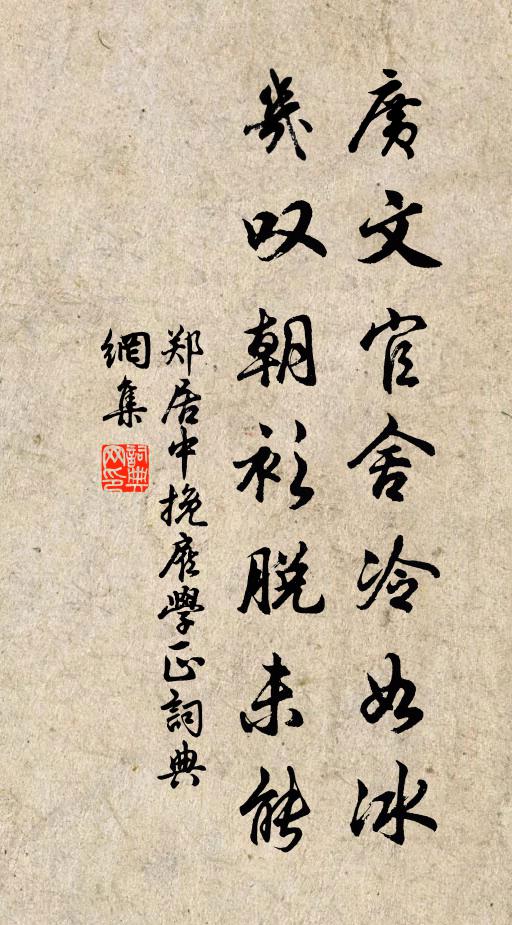 廣文官舍冷如冰
幾叹朝衫脱未能
郑居中挽府學正詞典
網集
詞典网印